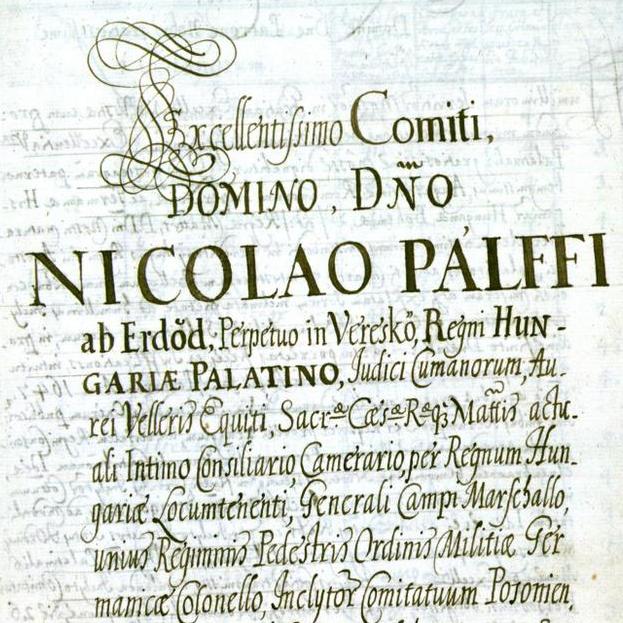 Excellentissimo Comiti,
DOMINO, DÑO
NICOLAO PÁLFFI
ab Erdőd, Perpetuo in Vereskő, Regni HUN-
GARIÆ PALATINO, Judici Cumanorum, Au-
rei Velleris Equiti, Sacræ Cæsæ Regqȝ Mattis actu-
ali Intimo Consiliario, Camerario, per Regnum Hun-
gariæ Locumtenenti, Generali Campi Marschallo,
unius Regiminis Pedestris Ordinis Militiæ Ger
manicæ Colonello, Inclytor Comitatuum Posonien,